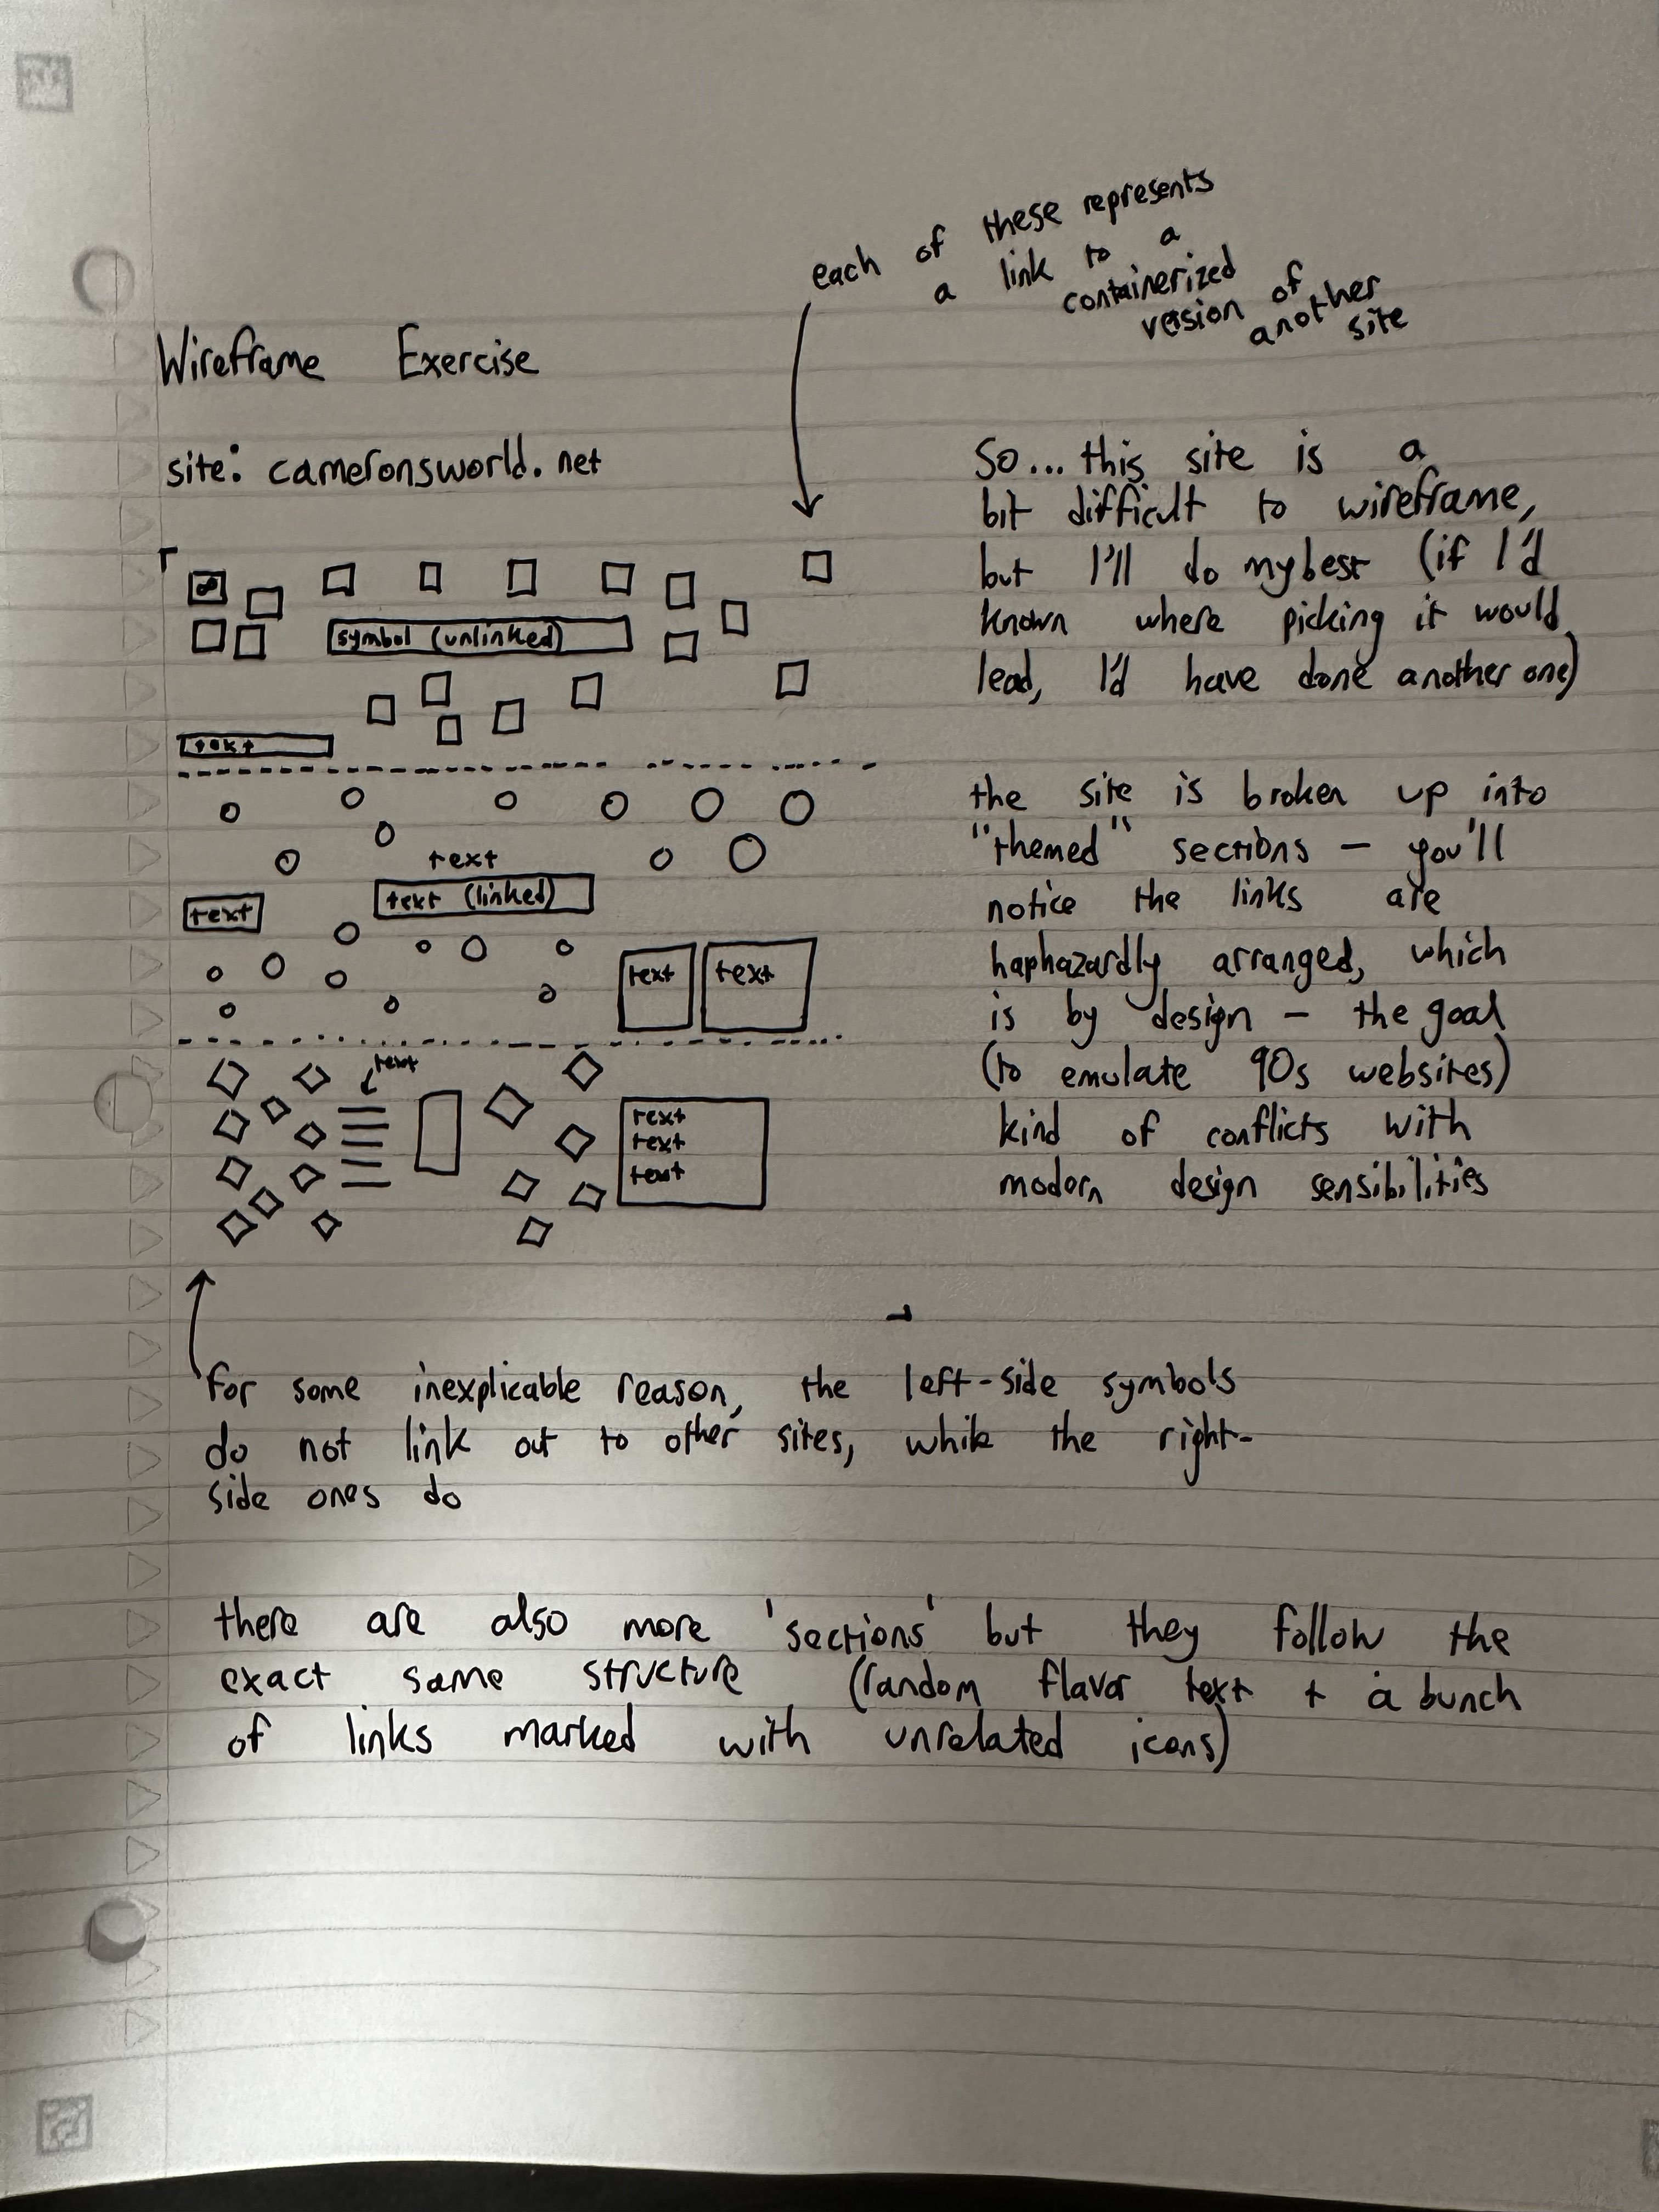 each of these represents
a link to a
containerized
version of
another
site
Wireframe Exercise
site: cameronsworld.net
symbol (unlinked)
text
text
text (linked)
text
text
text
text
text
text
text
So... this site is a
bit difficult to wireframe,
but I'll do my best (if I'd
known where picking it would
lead, I'd have done another one)
the site is broken up into
"themed" sections – you'll
notice the links are
haphazardly arranged, which
is by design – the goal
(to emulate 90s websites)
kind of conflicts with
modern design sensibilities
for some inexplicable reason, the left-side symbols
do not link out to other sites, while the right-
side ones do
there are also more 'sections' but they follow the
exact same structure (random flavor text + a bunch
of links marked with unrelated icons)